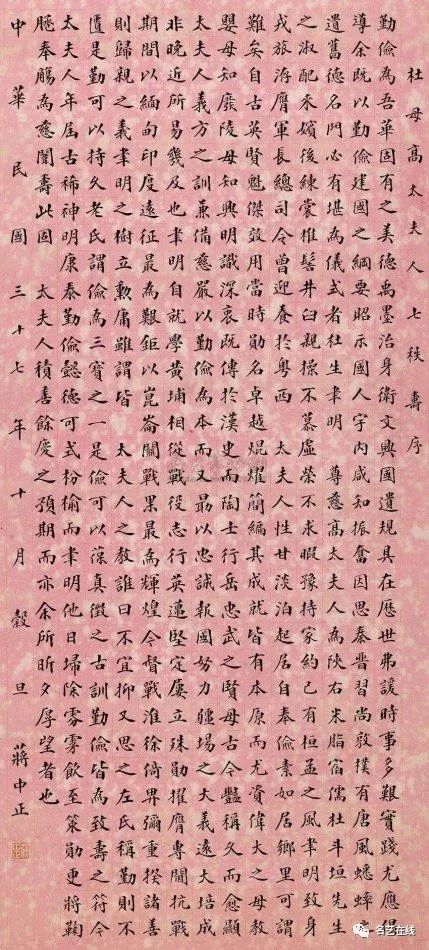 杜母高太夫人七秩壽序
勤儉為吾華固有之美德禹墨治身衛文興國遺規具在歷世弗諼時事多艱實踐尤應倡
導余既以勤儉建國之綱要昭示國人宇內咸知振奮因思秦晉習尚敦樸有唐風蟋蟀之
遺舊德名門必有堪為儀式者杜生聿明 尊慈高太夫人為陝右米脂宿儒杜斗垣先生
之淑配來嬪後練裳椎髻井臼親操不慕虛榮不求暇豫持家約己有桓孟之風聿明致身
戎旅洊膺軍長總司令曾迎養於粵西 太夫人性甘淡泊起居自奉儉素如居鄉里可謂
難矣自古英賢魁傑效用當時勛名卓越焜燿簡編其成就皆有本原而尤資偉大之母教
嬰母知廢陵母知興明識深衷既傳於漢史而陶士行岳忠武之賢母古今豔稱久而愈顯
太夫人義方之訓兼備慈嚴以勤儉為本而又最以忠誠報國努力疆場之大義遠大培成
非晚近所易幾及也聿明自就學黃埔相從戰役志行英邁堅定屢立殊勛擢膺專閫抗戰
期間以緬甸印度遠征最為艱鉅以崑崙關戰果最為輝煌今督戰淮徐倚畀彌重揆諸善
則歸親之義聿明之樹立勳庸雖謂皆 太夫人之教誰曰不宜抑又思之左氏稱勤則不
匱是勤可以持久老氏謂儉為三寶之一是儉可以葆真徵之古訓勤儉皆為致壽之符今
太夫人年屆古稀神明康泰勤儉懿德可式枌榆而聿明他日埽除雰雺飲至策勛更將鞠
䠻奉觴為慈闈壽此固 太夫人積善餘慶之預期而亦余所昕夕厚望者也
中華民國三十七年十月穀旦 蔣中正
名艺在线